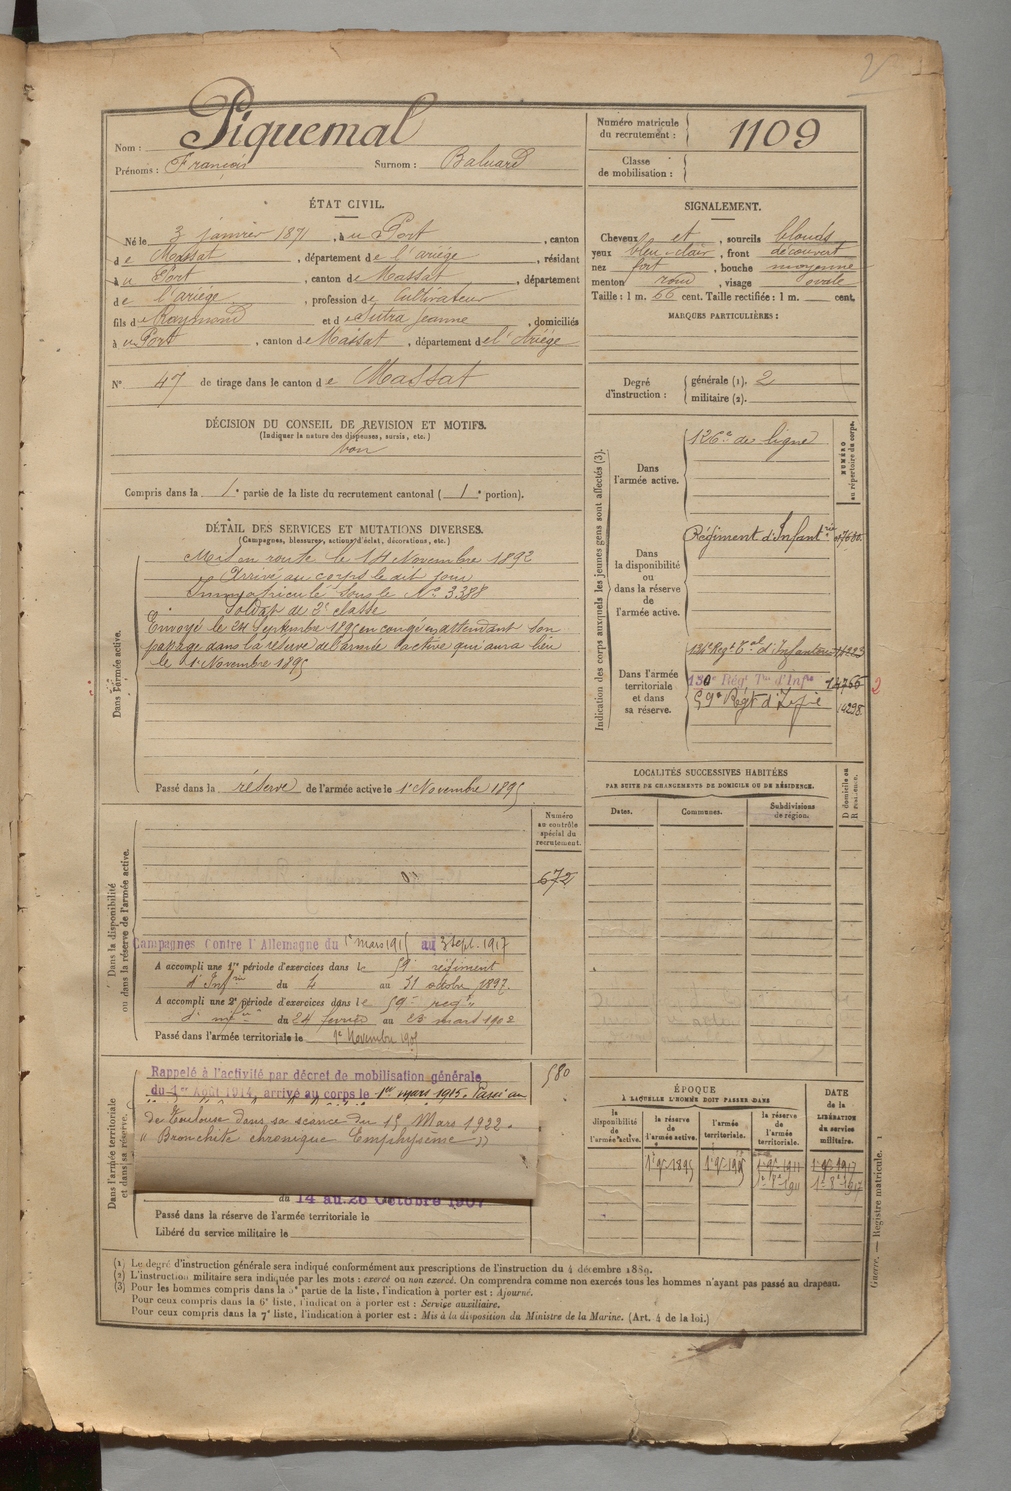 2
Nom : Piquemal
Prénoms : François Surnom : Baluard
Numéro matricule du recrutement : 1109
Classe de mobilisation :
ÉTAT CIVIL.
Né le 3 janvier 1871, à u Port, canton
de Massat, département de l'ariège, résidant
à u Port, canton de Massat, département
de l'ariège, profession de Cultivateur
fils de Raymond et de Sutra Jeanne, domiciliés
à u Port, canton de Massat, département de l'Ariège
N° 47 de tirage dans le canton de Massat
SIGNALEMENT.
Cheveux et, sourcils blonds
yeux bleu clair, front découvert
nez fort, bouche moyenne
menton rond, visage ovale
Taille : 1 m. 66 cent. Taille rectifiée : 1 m. cent.
MARQUES PARTICULIÈRES :
Degré d'instruction : générale (1). 2
militaire (2).
DÉCISION DU CONSEIL DE REVISION ET MOTIFS.
(Indiquer la nature des dispenses, sursis, etc.)
bon
Compris dans la 1e partie de la liste du recrutement cantonal (1e portion).
DÉTAIL DES SERVICES ET MUTATIONS DIVERSES.
(Campagnes, blessures, actions d'éclat, décorations, etc.)
Dans l'armée active.
Mis en route le 14 Novembre 1892
Arrivé au corps le dit jour
Immatriculé sous le N° 3388
Soldat de 2e classe
Envoyé le 24 Septembre 1895 en congé en attendant son
passage dans la réserve de l'armée active qui aura lieu
le 1e Novembre 1895
Passé dans la réserve de l'armée active le 1e Novembre 1895
Indication des corps auxquels les jeunes gens sont affectés (3).
NUMÉRO au répertoire du corps.
Dans l'armée active.
126e de ligne
Dans la disponibilité ou dans la réserve de l'armée active.
Régiment d'Infanterie
Dans l'armée territoriale et dans sa réserve.
134e Régt Tal d'Infanterie
130e Régt Tal d'Infie
59e Régt d'Infie 14298
2
LOCALITÉS SUCCESSIVES HABITÉES
PAR SUITE DE CHANGEMENTS DE DOMICILE OU DE RÉSIDENCE.
Dates. Communes. Subdivisions de région. D domicile ou R résidence.
Dans la disponibilité ou dans la réserve de l'armée active.
Numéro au contrôle spécial du recrutement.
672
Campagnes Contre l'Allemagne du 1e mars 1915 au 3 sept. 1917
A accompli une 1re période d'exercices dans le 59e régiment
d'Infrie du 4 au 31 octobre 1897.
A accompli une 2e période d'exercices dans le 59e regt
d'infrie du 24 février au 23 mars 1902
Passé dans l'armée territoriale le 1e Novembre 1905
Dans l'armée territoriale et dans sa réserve.
Rappelé à l'activité par décret de mobilisation générale 580
du 1er Août 1914, arrivé au corps le 1er mars 1915. Passé au
de Toulouse dans sa séance du 15 Mars 1922.
« Bronchite chronique Emphysème »
du 14 au 26 Octobre 1907
Passé dans la réserve de l'armée territoriale le
Libéré du service militaire le
ÉPOQUE
À LAQUELLE L'HOMME DOIT PASSER DANS
la disponibilité de l'armée active. la réserve de l'armée active. l'armée territoriale. la réserve de l'armée territoriale. DATE de la LIBÉRATION du service militaire.
1e 9e 1895 1e 9e 1905 1e 9e 1911 1e 9e 1917
1e 8e 1911 1e 8e 1917
Guerre. — Registre matricule. 1
(1) Le degré d'instruction générale sera indiqué conformément aux prescriptions de l'instruction du 4 décembre 1889.
(2) L'instruction militaire sera indiquée par les mots : exercé ou non exercé. On comprendra comme non exercés tous les hommes n'ayant pas passé au drapeau.
(3) Pour les hommes compris dans la 5e partie de la liste, l'indication à porter est : Ajourné.
Pour ceux compris dans la 6e liste, l'indication à porter est : Service auxiliaire.
Pour ceux compris dans la 7e liste, l'indication à porter est : Mis à la disposition du Ministre de la Marine. (Art. 4 de la loi.)